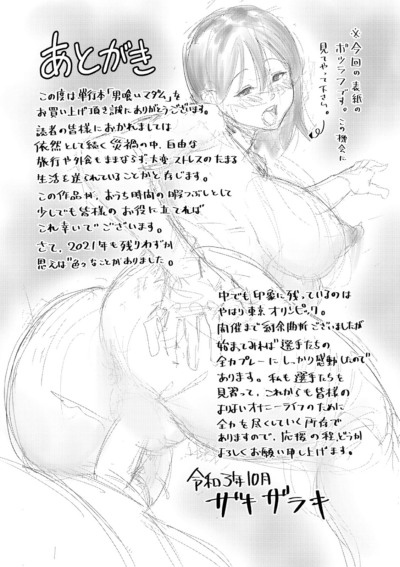 あとがき
この度は単行本「男喰いマダム」を
お買い上げ頂き誠にありがとうございます。
読者の皆様におかれましては
依然として続く災禍の中、自由な
旅行や外食もままならず大変ストレスのたまる
生活を送られていることかと存じます。
この作品が、おうち時間の暇つぶしとして
少しでも皆様のお役に立てれば
これ幸いでございます。
さて、2021年も残りわずか
思えば色々なことがありました。
※今回の表紙の
ボツラフです。この機会に
見てやって下さい。
中でも印象に残っているのは
やはり東京オリンピック。
開催まで紆余曲折ございましたが
始まってみれば選手たちの
全力プレーにしっかり感動したので
あります。私も選手たちを
見習って、これからも皆様の
よりよいオナニーライフのために
全力を尽くしていく所存で
ありますので、応援の程、どうか
よろしくお願い申し上げます。
令和3年10月
ザキザラキ